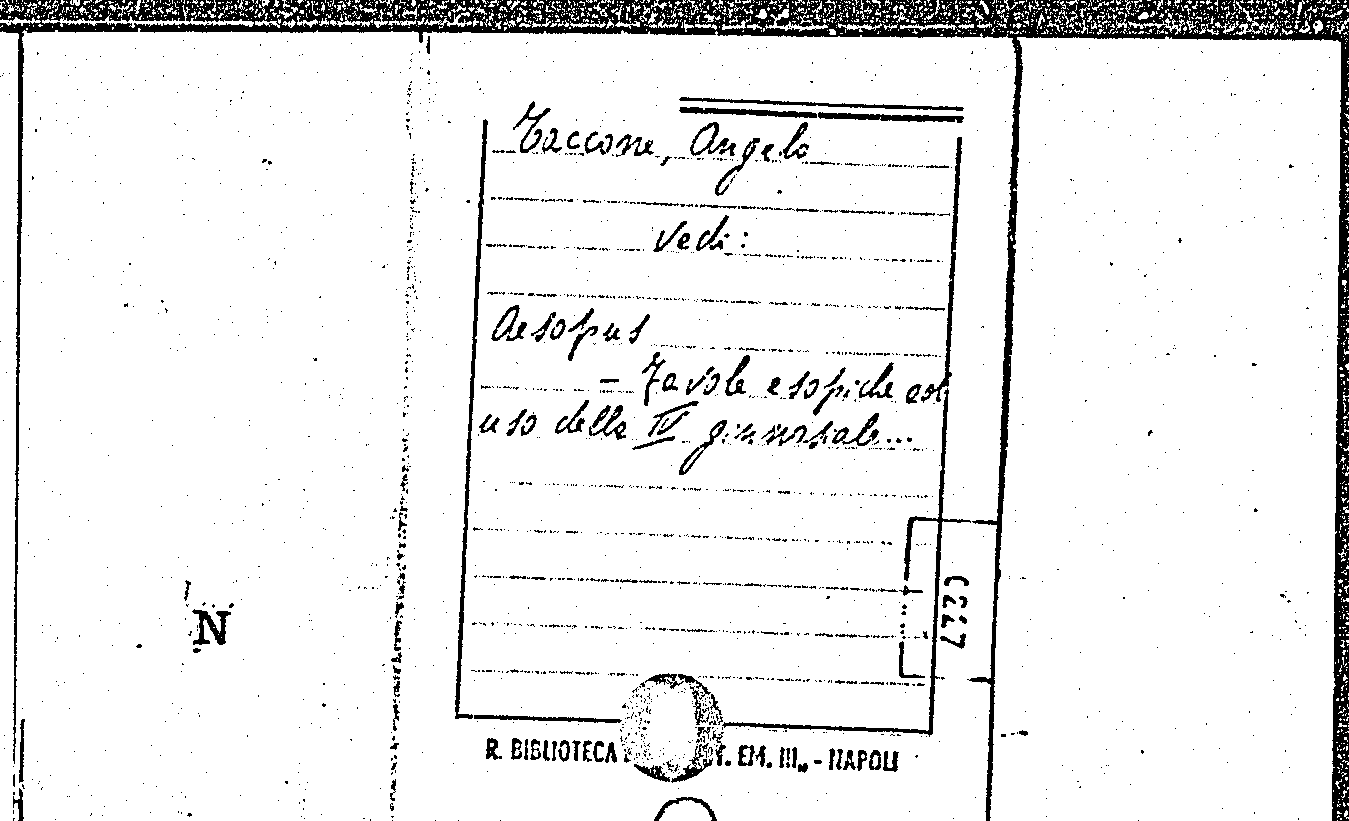 Taccone, Angelo
vedi:
Aesopus
- Favole esopiche ad
uso della IV ginnasiale...
N
R. BIBLIOTECA V. EM. III„ - NAPOLI